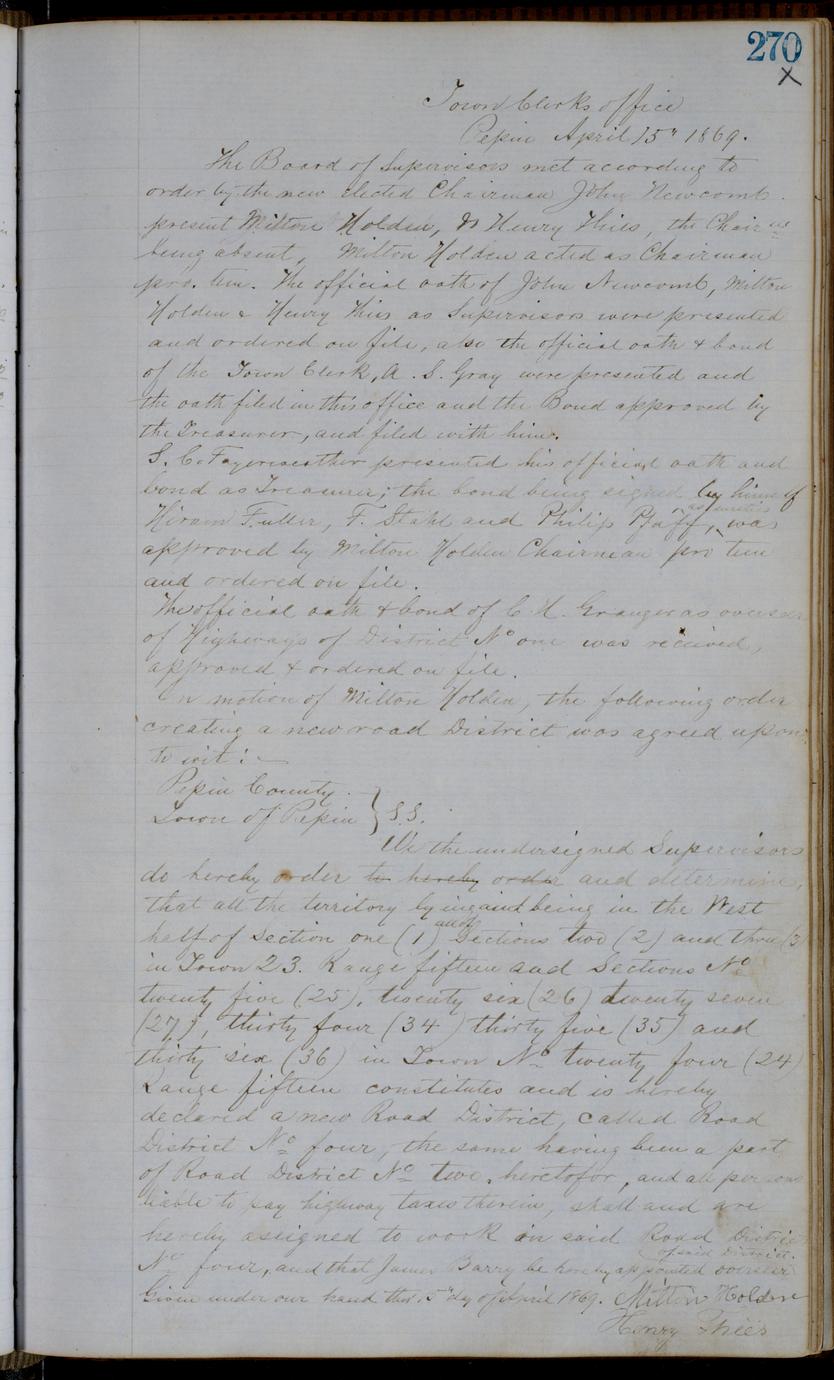 270
X
Town Clerks office
Pepin April 15" 1869.
The Board of Supervisors met according to
order by the new elected Chairman John Newcomb.
present Milton Holden, & Henry Thies, the Chair
being absent, Milton Holden acted as Chairman
pro. tem. The official oath of John Newcomb, Milton
Holden & Henry Thies as Supervisors were presented
and ordered on file, also the official oath & bond
of the Town Clerk, A. S. Gray were presented and
the oath filed in this office and the Bond approved by
the Treasurer, and filed with him.
S. C. Fayerweather presented his official oath and
bond as Treasurer; the bond being signed by himself
as sureties
Hiram Fuller, F. Stahl and Philip Pfaff, was
approved by Milton Holden Chairman pro tem
and ordered on file.
The official oath & bond of C. H. Granger as overseer
of Highways of District No one was received,
approved & ordered on file.
On motion of Milton Holden, the following order
creating a new road District was agreed upon,
to wit:
Pepin County.
Town of Pepin } S.S.
We the undersigned Supervisors
do hereby order to hereby order and determine,
that all the territory lying and being in the West
all of
half of Section one (1) Sections two (2) and three (3)
in Town 23. Range fifteen and Sections No
twenty five (25), twenty six (26) twenty seven
(27), thirty four (34) thirty five (35) and
thirty six (36) in Town No twenty four (24)
Range fifteen constitutes and is hereby
declared a new Road District, called Road
District No four, the same having been a part
of Road District No two, heretofor, and all persons
liable to pay highway taxes therein, shall and are
hereby assigned to work in said Road District
of said District.
No four, and that James Barry be hereby appointed overseer
Given under our hand this 5" day of April 1869. Milton Holden
Henry Thies